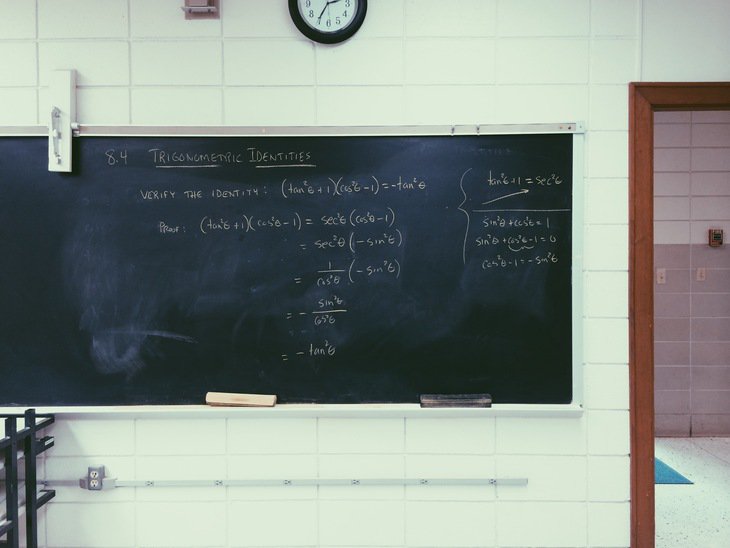 8.4 TRIGONOMETRIC IDENTITIES
VERIFY THE IDENTITY: (tan²θ+1)(cos²θ-1)=-tan²θ
PROOF: (tan²θ+1)(cos²θ-1) = sec²θ(cos²θ-1)
= sec²θ(-sin²θ)
= 1/cos²θ (-sin²θ)
= - sin²θ/cos²θ
= - tan²θ
tan²θ+1 = sec²θ
sin²θ+cos²θ=1
sin²θ+cos²θ-1=0
cos²θ-1=-sin²θ